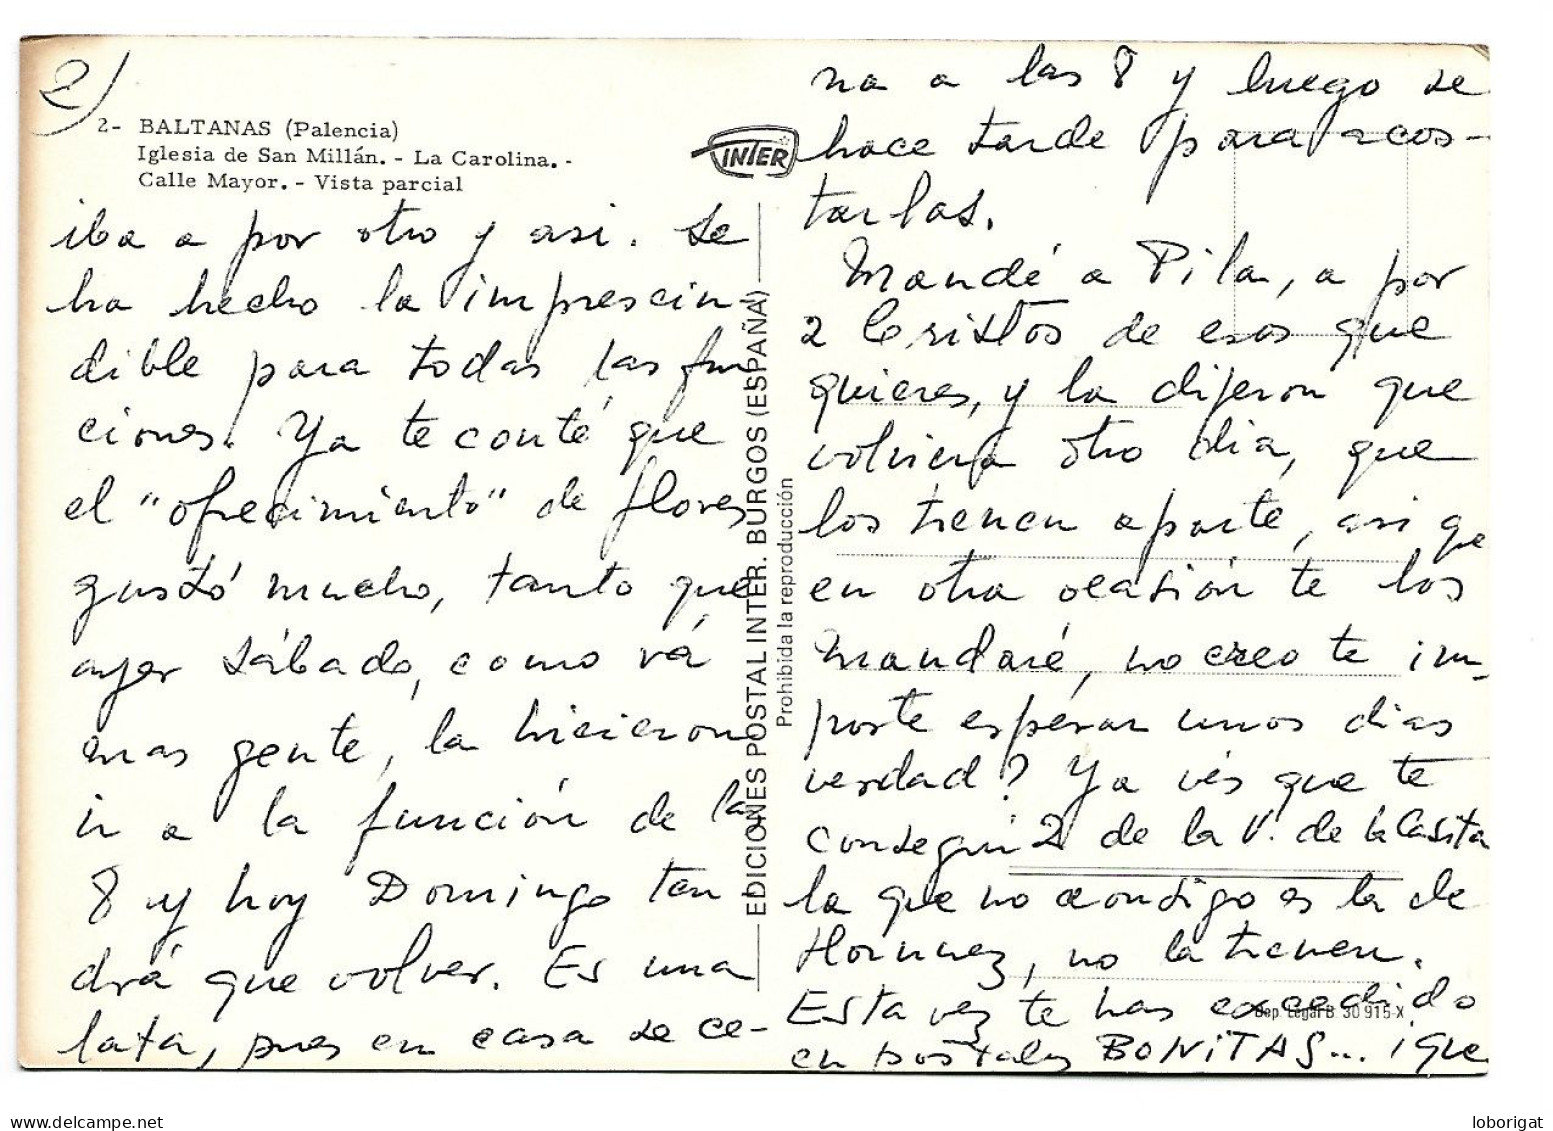 2)
2- BALTANAS (Palencia)
Iglesia de San Millán. - La Carolina. -
Calle Mayor. - Vista parcial
iba a por otro y asi. Se
ha hecho la imprescin
dible para todas las fun
ciones. Ya te conté que
el "ofrecimiento" de flores
gustó mucho, tanto que
ayer sábado, como vá
mas gente, la hicieron
ir a la función de las
8 y hoy Domingo ten
drá que volver. Es una
lata, pues en casa se ce-
INTER
EDICIONES POSTAL INTER. BURGOS (ESPAÑA)
Prohibida la reproducción
na a las 8 y luego se
hace tarde para acos-
tarlas.
Mandé a Pila, a por
2 Cristos de esos que
quieres, y la dijeron que
volviera otro dia, que
los tienen aparte, asi qe
en otra ocasión te los
mandaré, no creo te im-
porte esperar unos dias
verdad? Ya vés que te
conseguí 2 de la V. de la Casita
la que no consigo es la de
Hornuez, no la tienen.
Esta vez te has excedido
en postales BONITAS... ¡que
Dep. Legal B. 30 915-X
loborigat